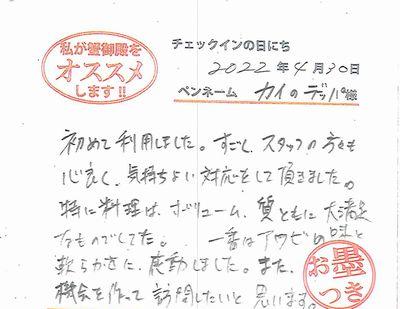 私が蟹御殿を
オススメ
します!!
チェックインの日にち
2022年4月30日
ペンネーム カイのデッパ様
初めて利用しました。すごく、スタッフの方々も
心良く、気持ちよい対応をして頂きました。
特に料理は、ボリューム、質ともに大満足
なものでした。一番はアワビの味と
軟らかさに、感動しました。また、
機会を作って訪問したいと思います。
お墨
つき